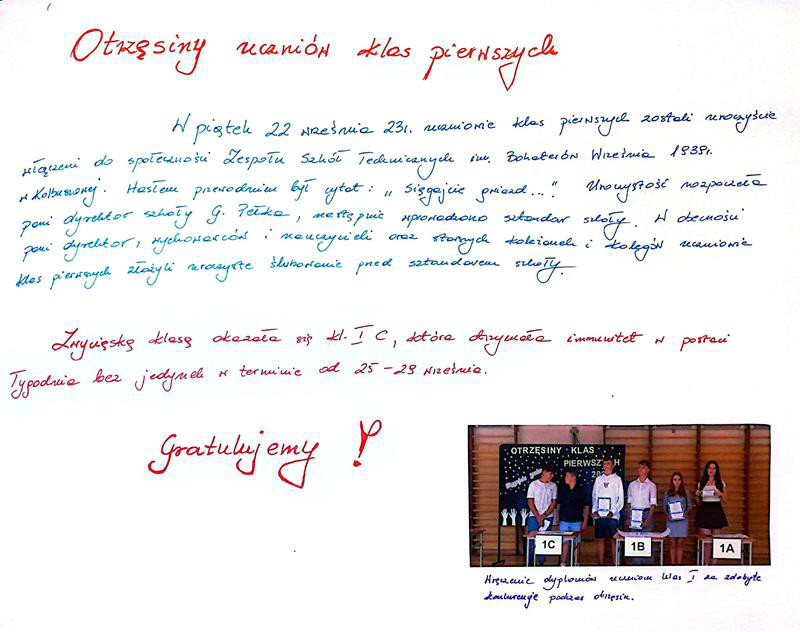 Otrzęsiny uczniów klas pierwszych
W piątek 22 września 23r. uczniowie klas pierwszych zostali uroczyście
włączeni do społeczności Zespołu Szkół Technicznych im. Bohaterów Września 1939r.
w Kolbuszowej. Hasłem przewodnim był cytat: „Sięgajcie gwiazd...". Uroczystość rozpoczęła
pani dyrektor szkoły G. Pełka, następnie wprowadzono sztandar szkoły. W obecności
pani dyrektor, wychowawców i nauczycieli oraz starszych koleżanek i kolegów uczniowie
klas pierwszych złożyli uroczyste ślubowanie przed sztandarem szkoły.
Zwycięską klasą okazała się kl. I C, która otrzymała immunitet w postaci
Tygodnia bez jedynek w terminie od 25-29 września.
Gratulujemy!
OTRZĘSINY KLAS
PIERWSZYCH
1C
1B
1A
Wręczenie dyplomów uczniom klas I za zdobyte
konkurencje podczas otrzęsin.